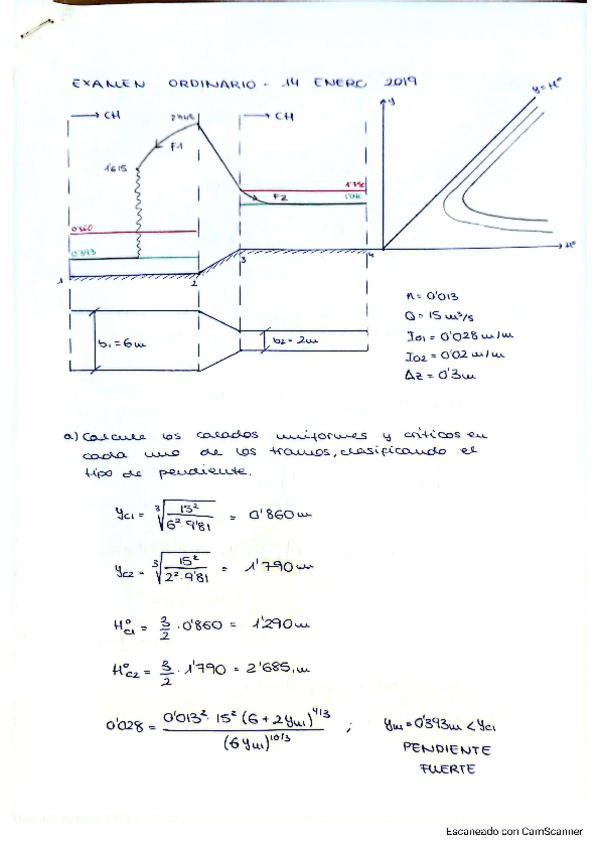 EXAMEN ORDINARIO - 14 ENERO 2019
CH
F1
1'615
CH
F2
1'790
y
y=H°
H°
0'860
0'393
1
2
3
4
b₁=6m
b₂=2m
n=0'013
Q=15m³/s
I₀₁=0'028m/m
I₀₂=0'02m/m
Δz=0'3m
a) Calcule los calados uniformes y críticos en
cada uno de los tramos, clasificando el
tipo de pendiente.
yc1 = ∛(15²/(6²·9'81)) = 0'860m
yc2 = ∛(15²/(2²·9'81)) = 1'790m
H°c1 = 3/2 · 0'860 = 1'290m
H°c2 = 3/2 · 1'790 = 2'685m
0'028 = 0'013²·15²(6+2yu1)^4/3 / (6yu1)^10/3 ; yu1=0'393m<yc1
PENDIENTE
FUERTE
Escaneado con CamScanner